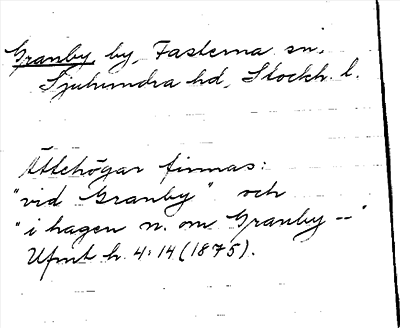 Granby, by, Fasterna sn.
Sjuhundra hd, Stockh. l.
Ättehögar finnas:
"vid Granby" och
"i hagen n. om Granby --"
Ufmt h. 4:14 (1875).